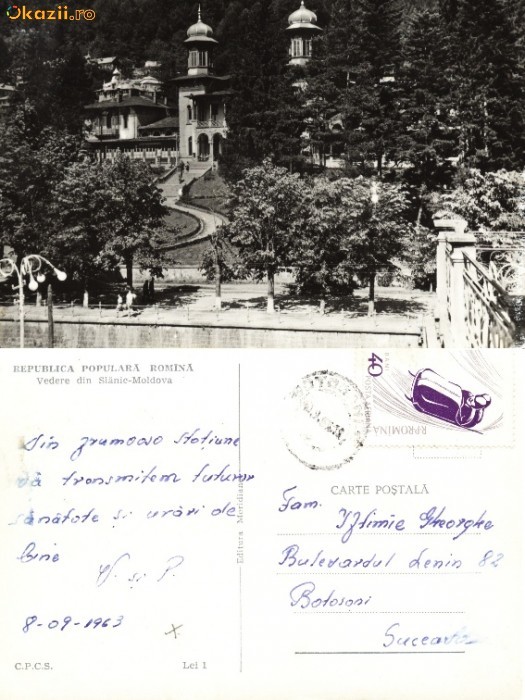 Okazii.ro
REPUBLICA POPULARĂ ROMÎNĂ
Vedere din Slănic-Moldova
Din frumoasa stațiune
vă transmitem tuturor
sănătate și urări de
bine
V. și P.
8-09-1963
C.P.C.S.
Lei 1
Editura Meridiane
40
R.P.ROMINA
CARTE POȘTALĂ
Fam.
Iftimie Gheorghe
Bulevardul Lenin 82
Botoșani
Suceava